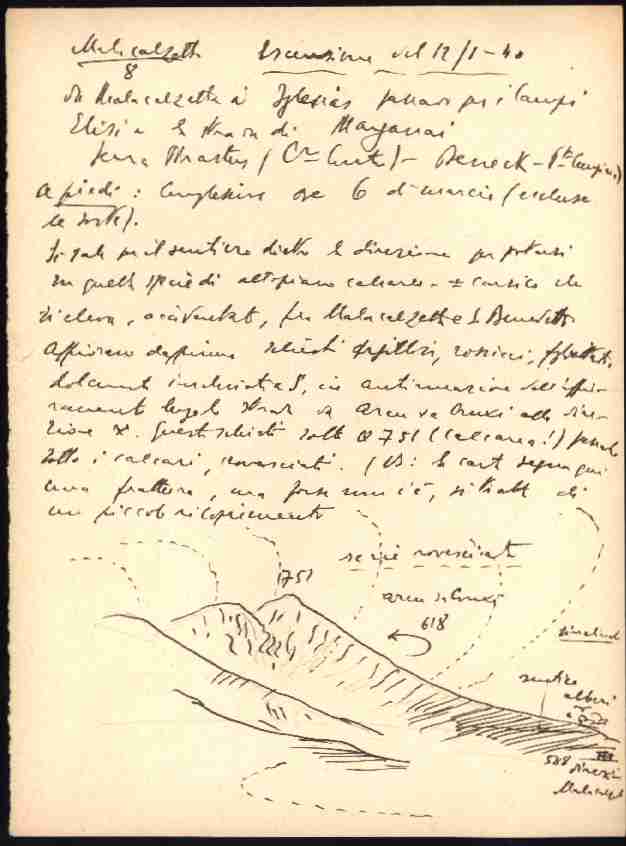 Malacalzetta Escursione del 12/1-40
8
da Malacalzetta a Iglesias passando per i Campi
Elisi e la strada di Marganai
Serra Trastus (C.ra
a piedi: complessive ore 6 di marcia (escluse
le soste).
Si sale per il sentiero dietro la direzione per portarsi
su quella specie di altopiano calcareo - ± carsico che
si eleva, accidentato, fra Malacalzetta e S. Benedetto
Affiorano dapprima scisti argillosi, rossicci,
dolcemente inclinati a S, in continuazione dell'affio-
ramento lungo la strada da Arcu sa Cruxi alla dire-
zione x. Questi scisti sotto Q 751 (calcarea!) passano
sotto i calcari, rovesciati. (NB: la carta segna qui
una frattura, ma forse non c'è, si tratta di
un piccolo ricoprimento
serie rovesciata
751
arcu sa Cruxi
618
sinclinale
alberi
588 direzione
Malacalzetta